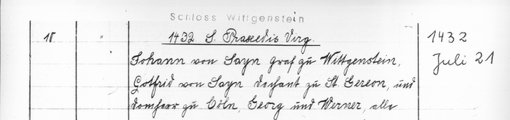 Schloss Wittgenstein
18 1432 S. Praxedis Virg. 1432
Johann von Sayn Graf zu Wittgenstein, Juli 21
Gotfrid von Sayn Dechant zu St. Gereon, und
Domherr zu Cöln, Georg und Werner, alle